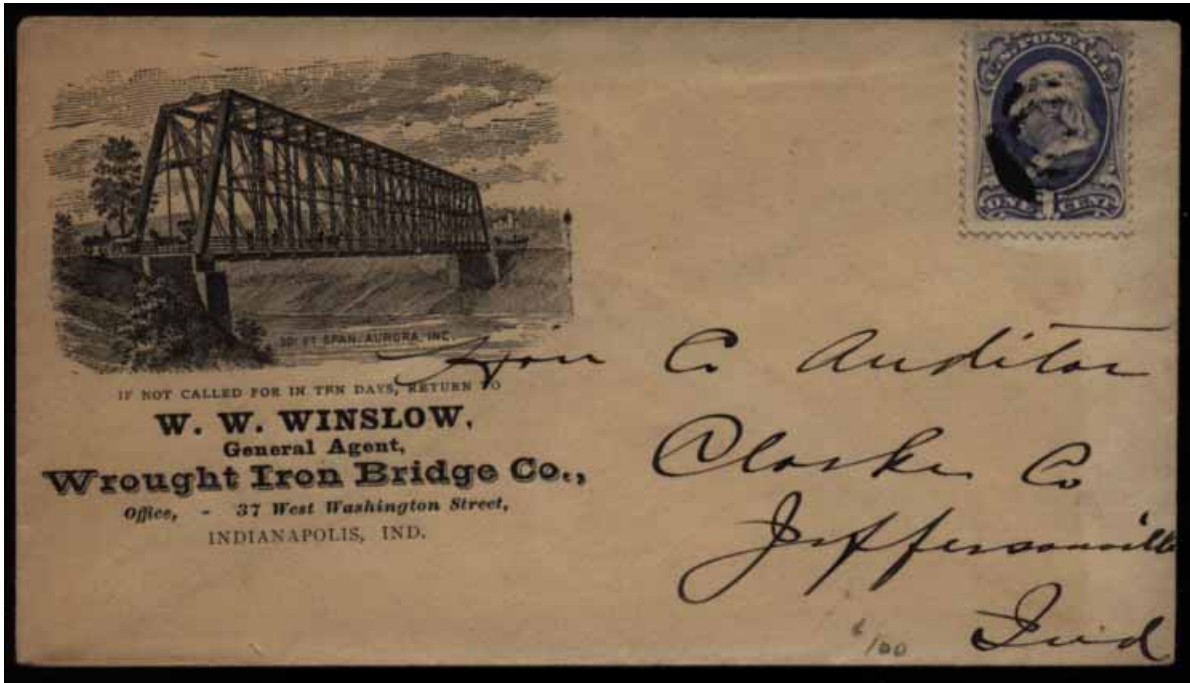 U.S. POSTAGE
ONE 1 CENT
FT SPAN, AURORA, IND.
IF NOT CALLED FOR IN TEN DAYS, RETURN TO
W. W. WINSLOW,
General Agent,
Wrought Iron Bridge Co.,
Office, - 37 West Washington Street,
INDIANAPOLIS, IND.
Hon Co Auditor
Clarke Co
Jeffersonville
Ind
/100